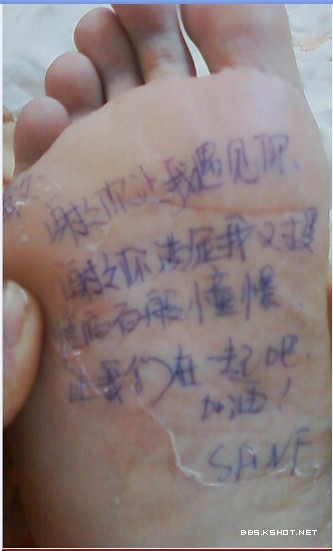 谢谢你让我遇见你
谢谢你满足我对
百般憧憬
让我们在一起吧
加油！
SANF
BBS.KSHOT.NET